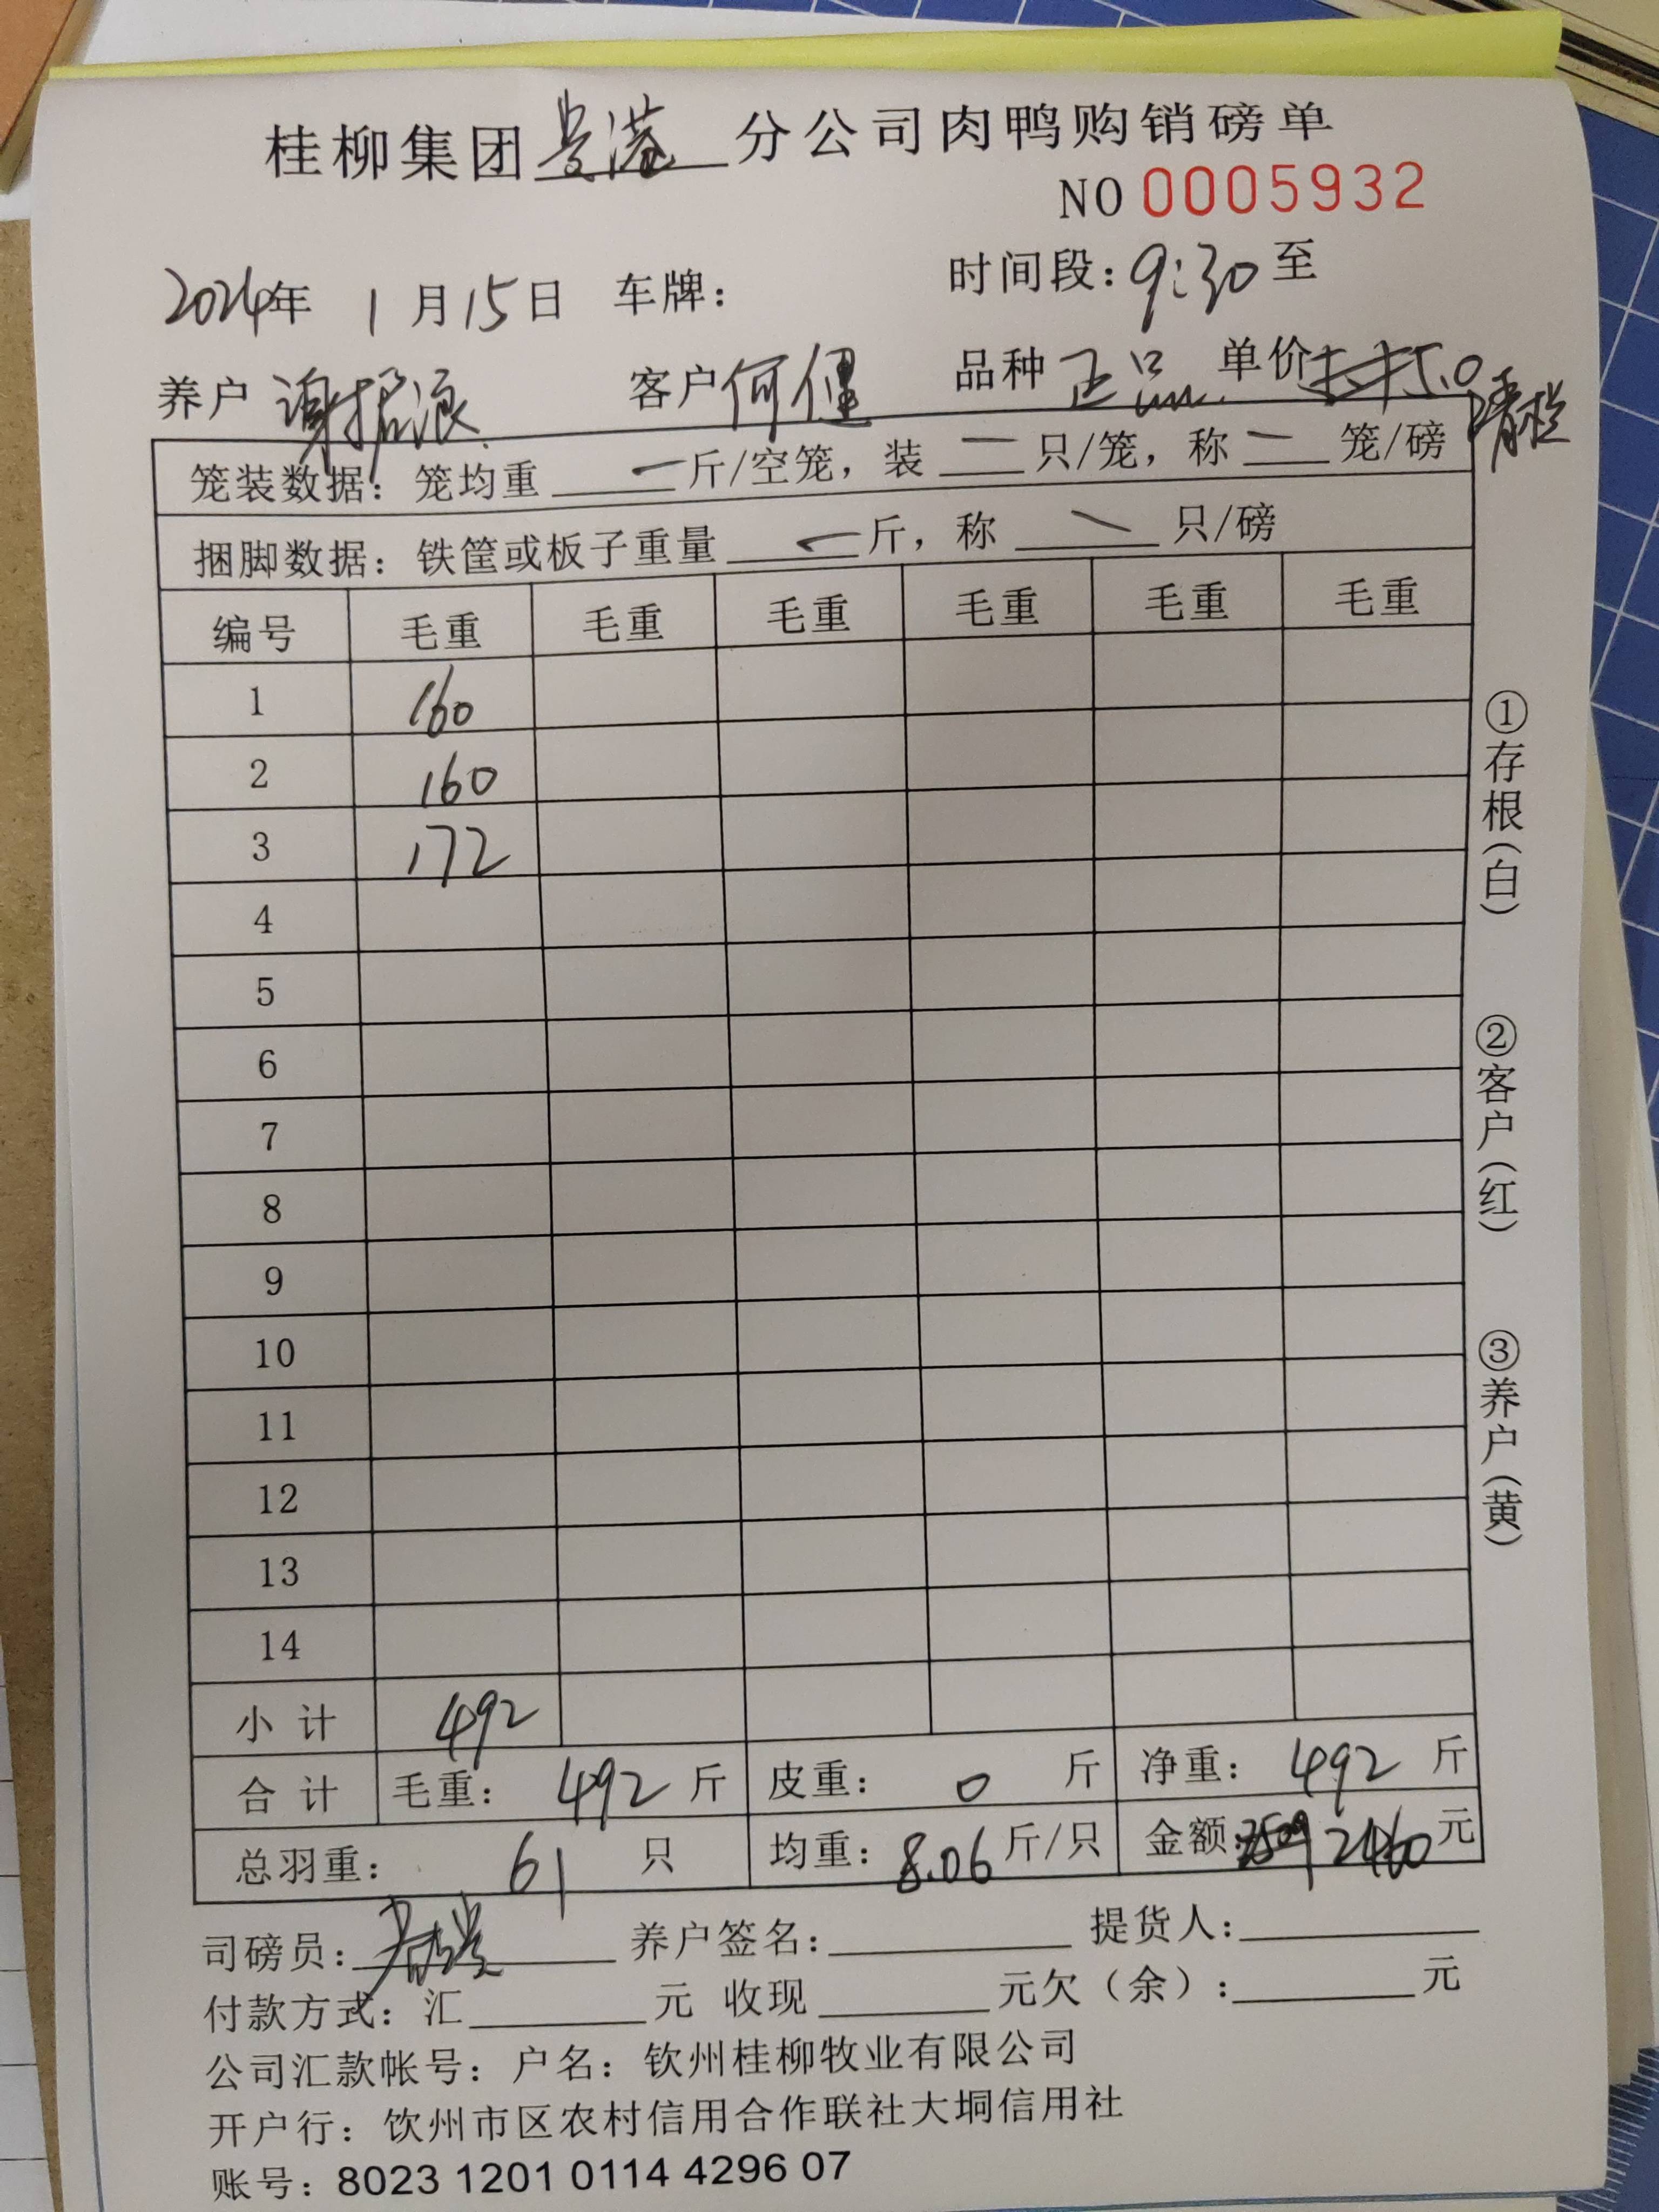 桂柳集团贵港分公司肉鸭购销磅单
NO 0005932
2024年 1 月 15 日 车牌： 时间段：9:30 至
养户 谢振浪 客户 何健 品种 正品 单价 5.0
笼装数据：笼均重 一 斤/空笼，装 一 只/笼，称 一 笼/磅
捆脚数据：铁筐或板子重量 一 斤，称 一 只/磅
编号 毛重 毛重 毛重 毛重 毛重 毛重
1 160
2 160
3 172
4
5
6
7
8
9
10
11
12
13
14
小 计 492
合 计 毛重： 492 斤 皮重： 0 斤 净重： 492 斤
总羽重： 61 只 均重：8.06 斤/只 金额： 2460 元
①存根（白） ②客户（红） ③养户（黄）
司磅员： 养户签名： 提货人：
付款方式：汇 元 收现 元欠（余）： 元
公司汇款帐号：户名：钦州桂柳牧业有限公司
开户行：饮州市区农村信用合作联社大垌信用社
账号：8023 1201 0114 4296 07